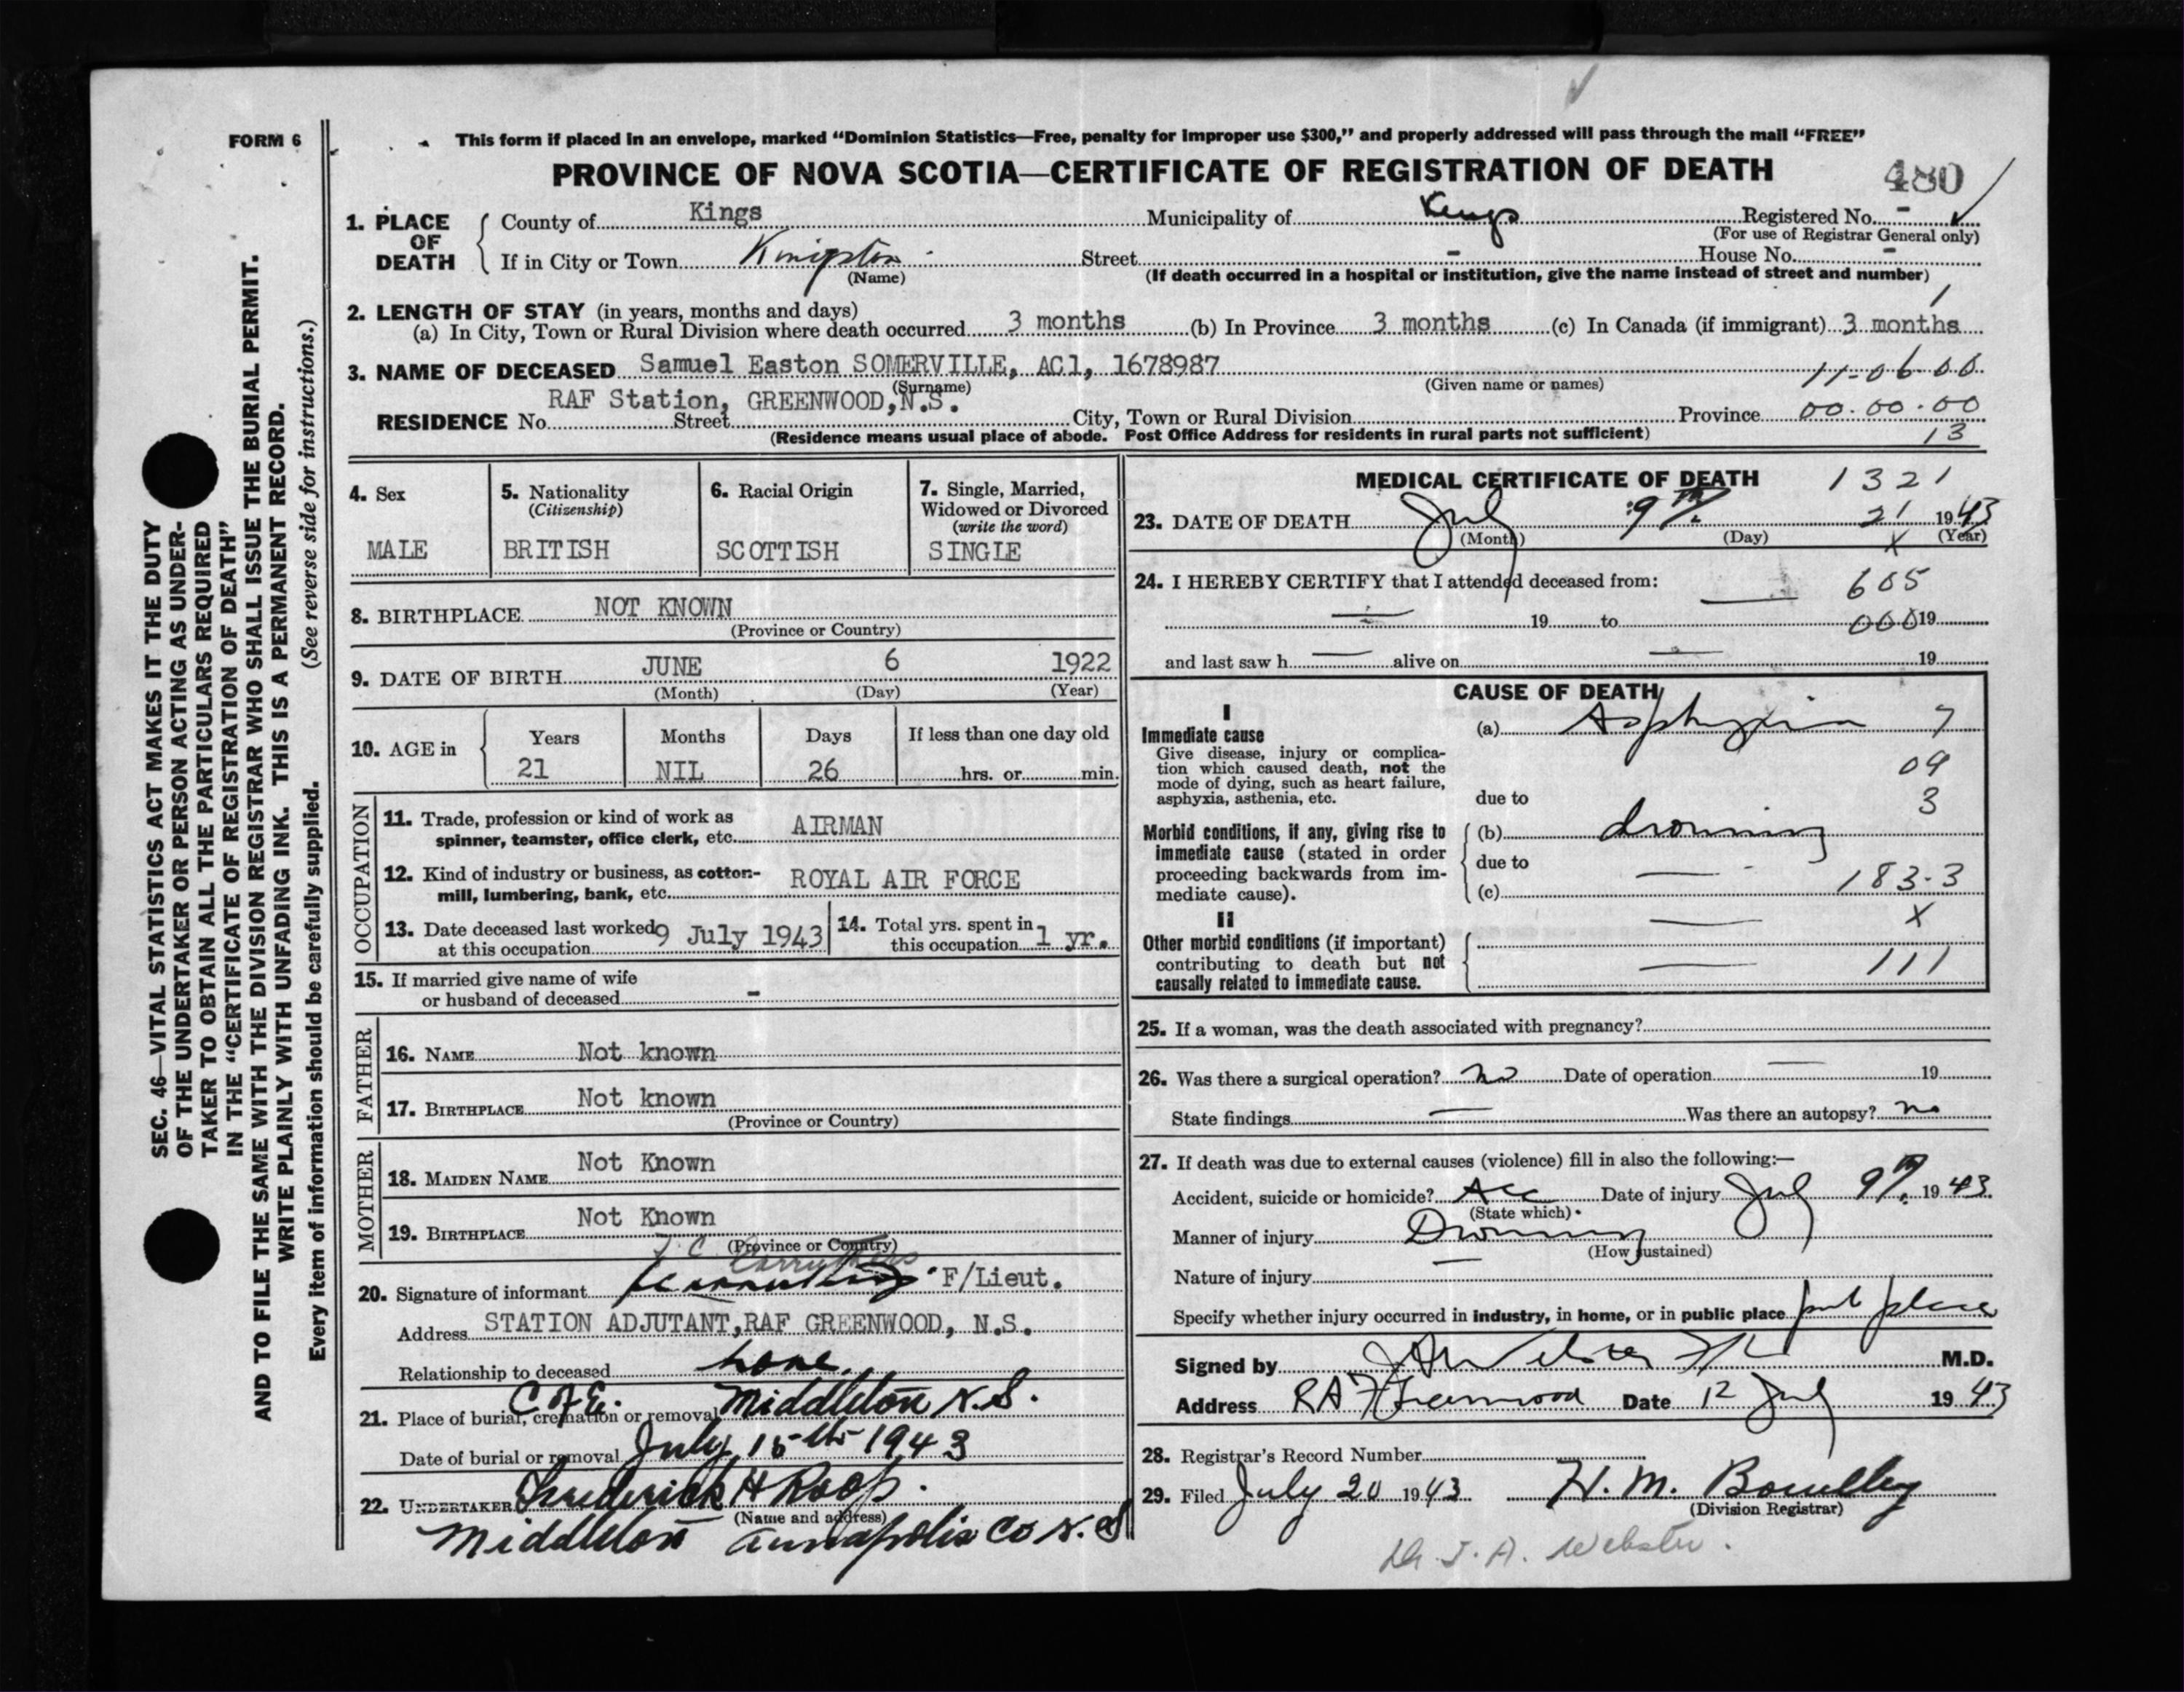 FORM 6
This form if placed in an envelope, marked "Dominion Statistics—Free, penalty for improper use $300," and properly addressed will pass through the mail "FREE"
PROVINCE OF NOVA SCOTIA—CERTIFICATE OF REGISTRATION OF DEATH
480
1. PLACE OF DEATH
County of Kings Municipality of Kings Registered No. -
(For use of Registrar General only)
If in City or Town Kingston Street - House No. -
(Name) (If death occurred in a hospital or institution, give the name instead of street and number)
2. LENGTH OF STAY (in years, months and days)
(a) In City, Town or Rural Division where death occurred 3 months (b) In Province 3 months (c) In Canada (if immigrant) 3 months
3. NAME OF DECEASED Samuel Easton SOMERVILLE, AC1, 1678987 11-06-00
(Surname) (Given name or names)
RAF Station, GREENWOOD, N.S.
RESIDENCE No. Street City, Town or Rural Division Province 00.00.00
(Residence means usual place of abode. Post Office Address for residents in rural parts not sufficient) 13
SEC. 46—VITAL STATISTICS ACT MAKES IT THE DUTY
OF THE UNDERTAKER OR PERSON ACTING AS UNDER-
TAKER TO OBTAIN ALL THE PARTICULARS REQUIRED
IN THE "CERTIFICATE OF REGISTRATION OF DEATH"
AND TO FILE THE SAME WITH THE DIVISION REGISTRAR WHO SHALL ISSUE THE BURIAL PERMIT.
WRITE PLAINLY WITH UNFADING INK. THIS IS A PERMANENT RECORD.
Every item of information should be carefully supplied. (See reverse side for instructions.)
4. Sex
MALE
5. Nationality
(Citizenship)
BRITISH
6. Racial Origin
SCOTTISH
7. Single, Married,
Widowed or Divorced
(write the word)
SINGLE
8. BIRTHPLACE NOT KNOWN
(Province or Country)
9. DATE OF BIRTH JUNE 6 1922
(Month) (Day) (Year)
10. AGE in
Years Months Days If less than one day old
21 NIL 26 hrs. or min.
OCCUPATION
11. Trade, profession or kind of work as
spinner, teamster, office clerk, etc. AIRMAN
12. Kind of industry or business, as cotton-
mill, lumbering, bank, etc. ROYAL AIR FORCE
13. Date deceased last worked
at this occupation 9 July 1943
14. Total yrs. spent in
this occupation 1 yr.
15. If married give name of wife
or husband of deceased -
FATHER
16. NAME Not known
17. BIRTHPLACE Not known
(Province or Country)
MOTHER
18. MAIDEN NAME Not Known
19. BIRTHPLACE Not Known
(Province or Country)
Carruthers
20. Signature of informant F/Lieut.
Address STATION ADJUTANT, RAF GREENWOOD, N.S.
Relationship to deceased none.
21. Place of burial, cremation or removal C of E. Middleton N.S.
Date of burial or removal July 15th 1943
22. UNDERTAKER Frederick H Roop.
(Name and address)
Middleton Annapolis Co N.S
MEDICAL CERTIFICATE OF DEATH 1321
23. DATE OF DEATH July 9th. 21 1943
(Month) (Day) X (Year)
24. I HEREBY CERTIFY that I attended deceased from: — 605
— 19 to 000 19
and last saw h — alive on — 19
CAUSE OF DEATH
I
Immediate cause
Give disease, injury or complica-
tion which caused death, not the
mode of dying, such as heart failure,
asphyxia, asthenia, etc.
(a) Asphyxia 7
09
due to 3
Morbid conditions, if any, giving rise to
immediate cause (stated in order
proceeding backwards from im-
mediate cause).
(b) drowning
due to —
(c) 183-3
II
— X
Other morbid conditions (if important)
contributing to death but not
causally related to immediate cause.
— 111
25. If a woman, was the death associated with pregnancy?
26. Was there a surgical operation? no Date of operation — 19
State findings — Was there an autopsy? no
27. If death was due to external causes (violence) fill in also the following:—
Accident, suicide or homicide? Acc Date of injury July 9th. 1943.
(State which)
Manner of injury Drowning
(How sustained)
Nature of injury —
Specify whether injury occurred in industry, in home, or in public place pub place
Signed by JA Webster M.D.
Address RAF Greenwood Date 12 July 1943
28. Registrar's Record Number
29. Filed July 20 1943 H. M.
(Division Registrar)
Dr. J. A. Webster.